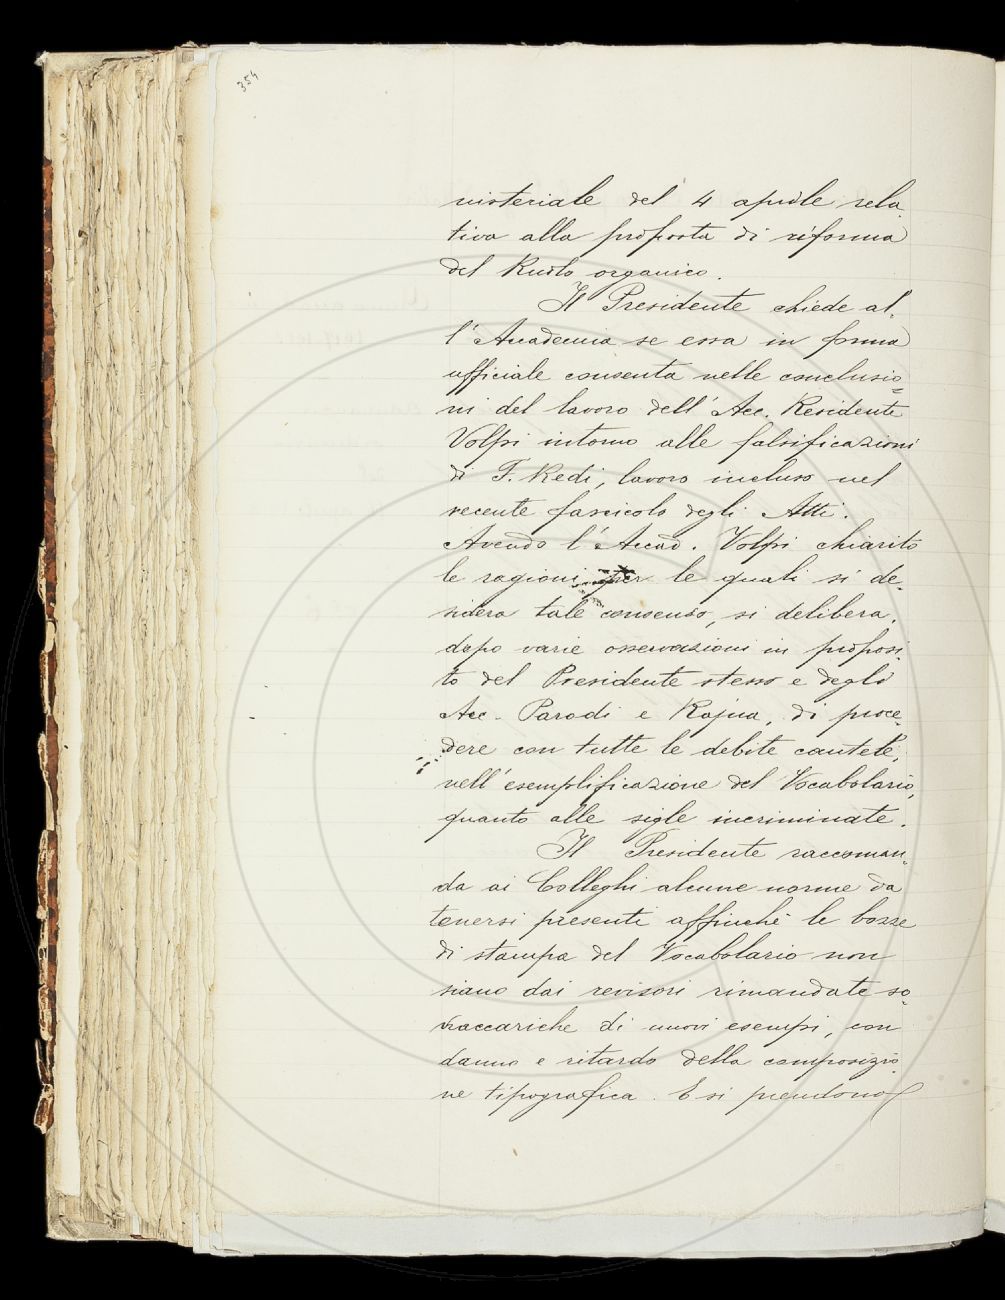 354
nisteriale del 4 aprile rela-
tiva alla proposta di riforma
del Ruolo organico.
Il Presidente chiede al-
l'Accademia se essa in forma
ufficiale consenta nelle conclusio=
ni del lavoro dell'Acc. Residente
Volpi intorno alle falsificazioni
di F. Redi, lavoro incluso nel
recente fascicolo degli Atti.
Avendo l'Accad. Volpi chiarito
le ragioni per le quali si de-
sidera tale consenso, si delibera,
dopo varie osservazioni in proposi-
to del Presidente stesso e degli
Acc. Parodi e Rajna, di proce-
dere con tutte le debite cautele,
nell'esemplificazione del Vocabolario,
quanto alle sigle incriminate.
Il Presidente raccoman-
da ai Colleghi alcune norme da
tenersi presenti affinché le bozze
di stampa del Vocabolario non
siano dai revisori rimandate so-
vraccariche di nuovi esempi, con
danno e ritardo della composizio-
ne tipografica. E si prendono